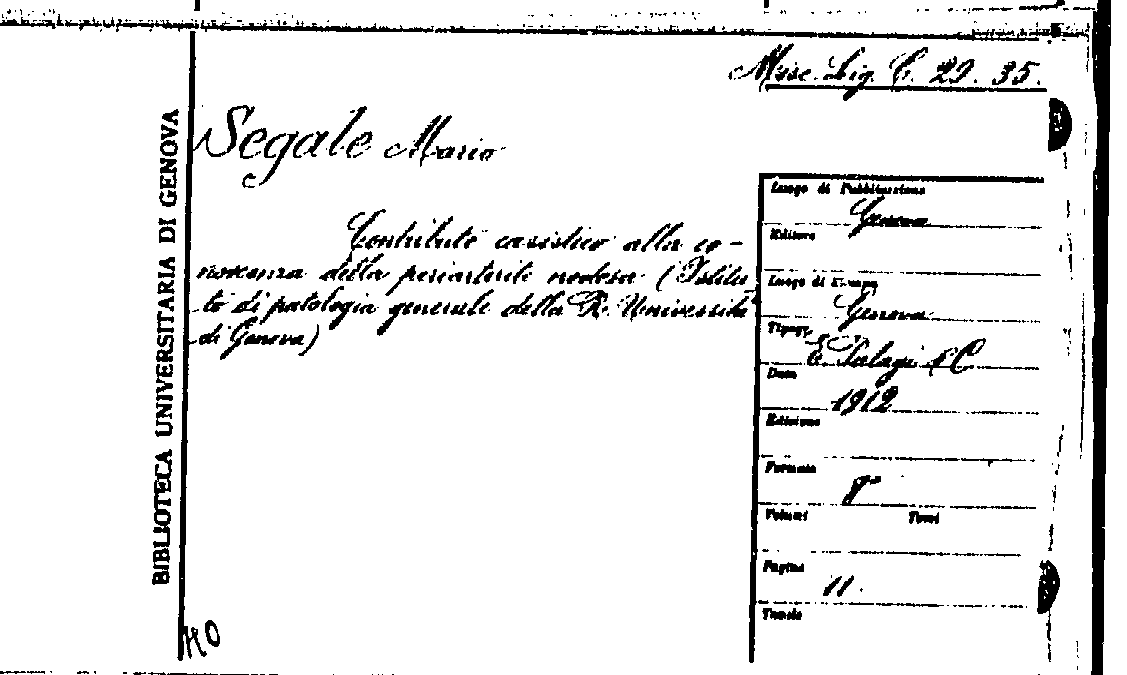 Misc. Lig. C. 29. 35.
BIBLIOTECA UNIVERSITARIA DI GENOVA
Segale Mario
Contributo casistico alla co-
noscenza della periarterite nodosa (Istitu-
to di patologia generale della R. Università
di Genova)
Luogo di Pubblicazione
Genova
Editore
Luogo di Stampa
Genova
Tipogr.
E. Palagi & C
Data
1912
Edizione
Formato
8°
Volumi Tomi
Pagine
11.
Tavole